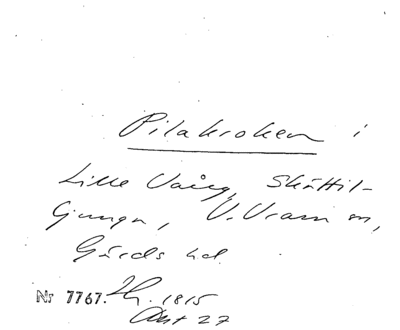 Pilakroken i
Lille Vång, Skättil-
junga, V. Vram sn,
Gärds hd.
Nr 7767. 1815
Akt 27